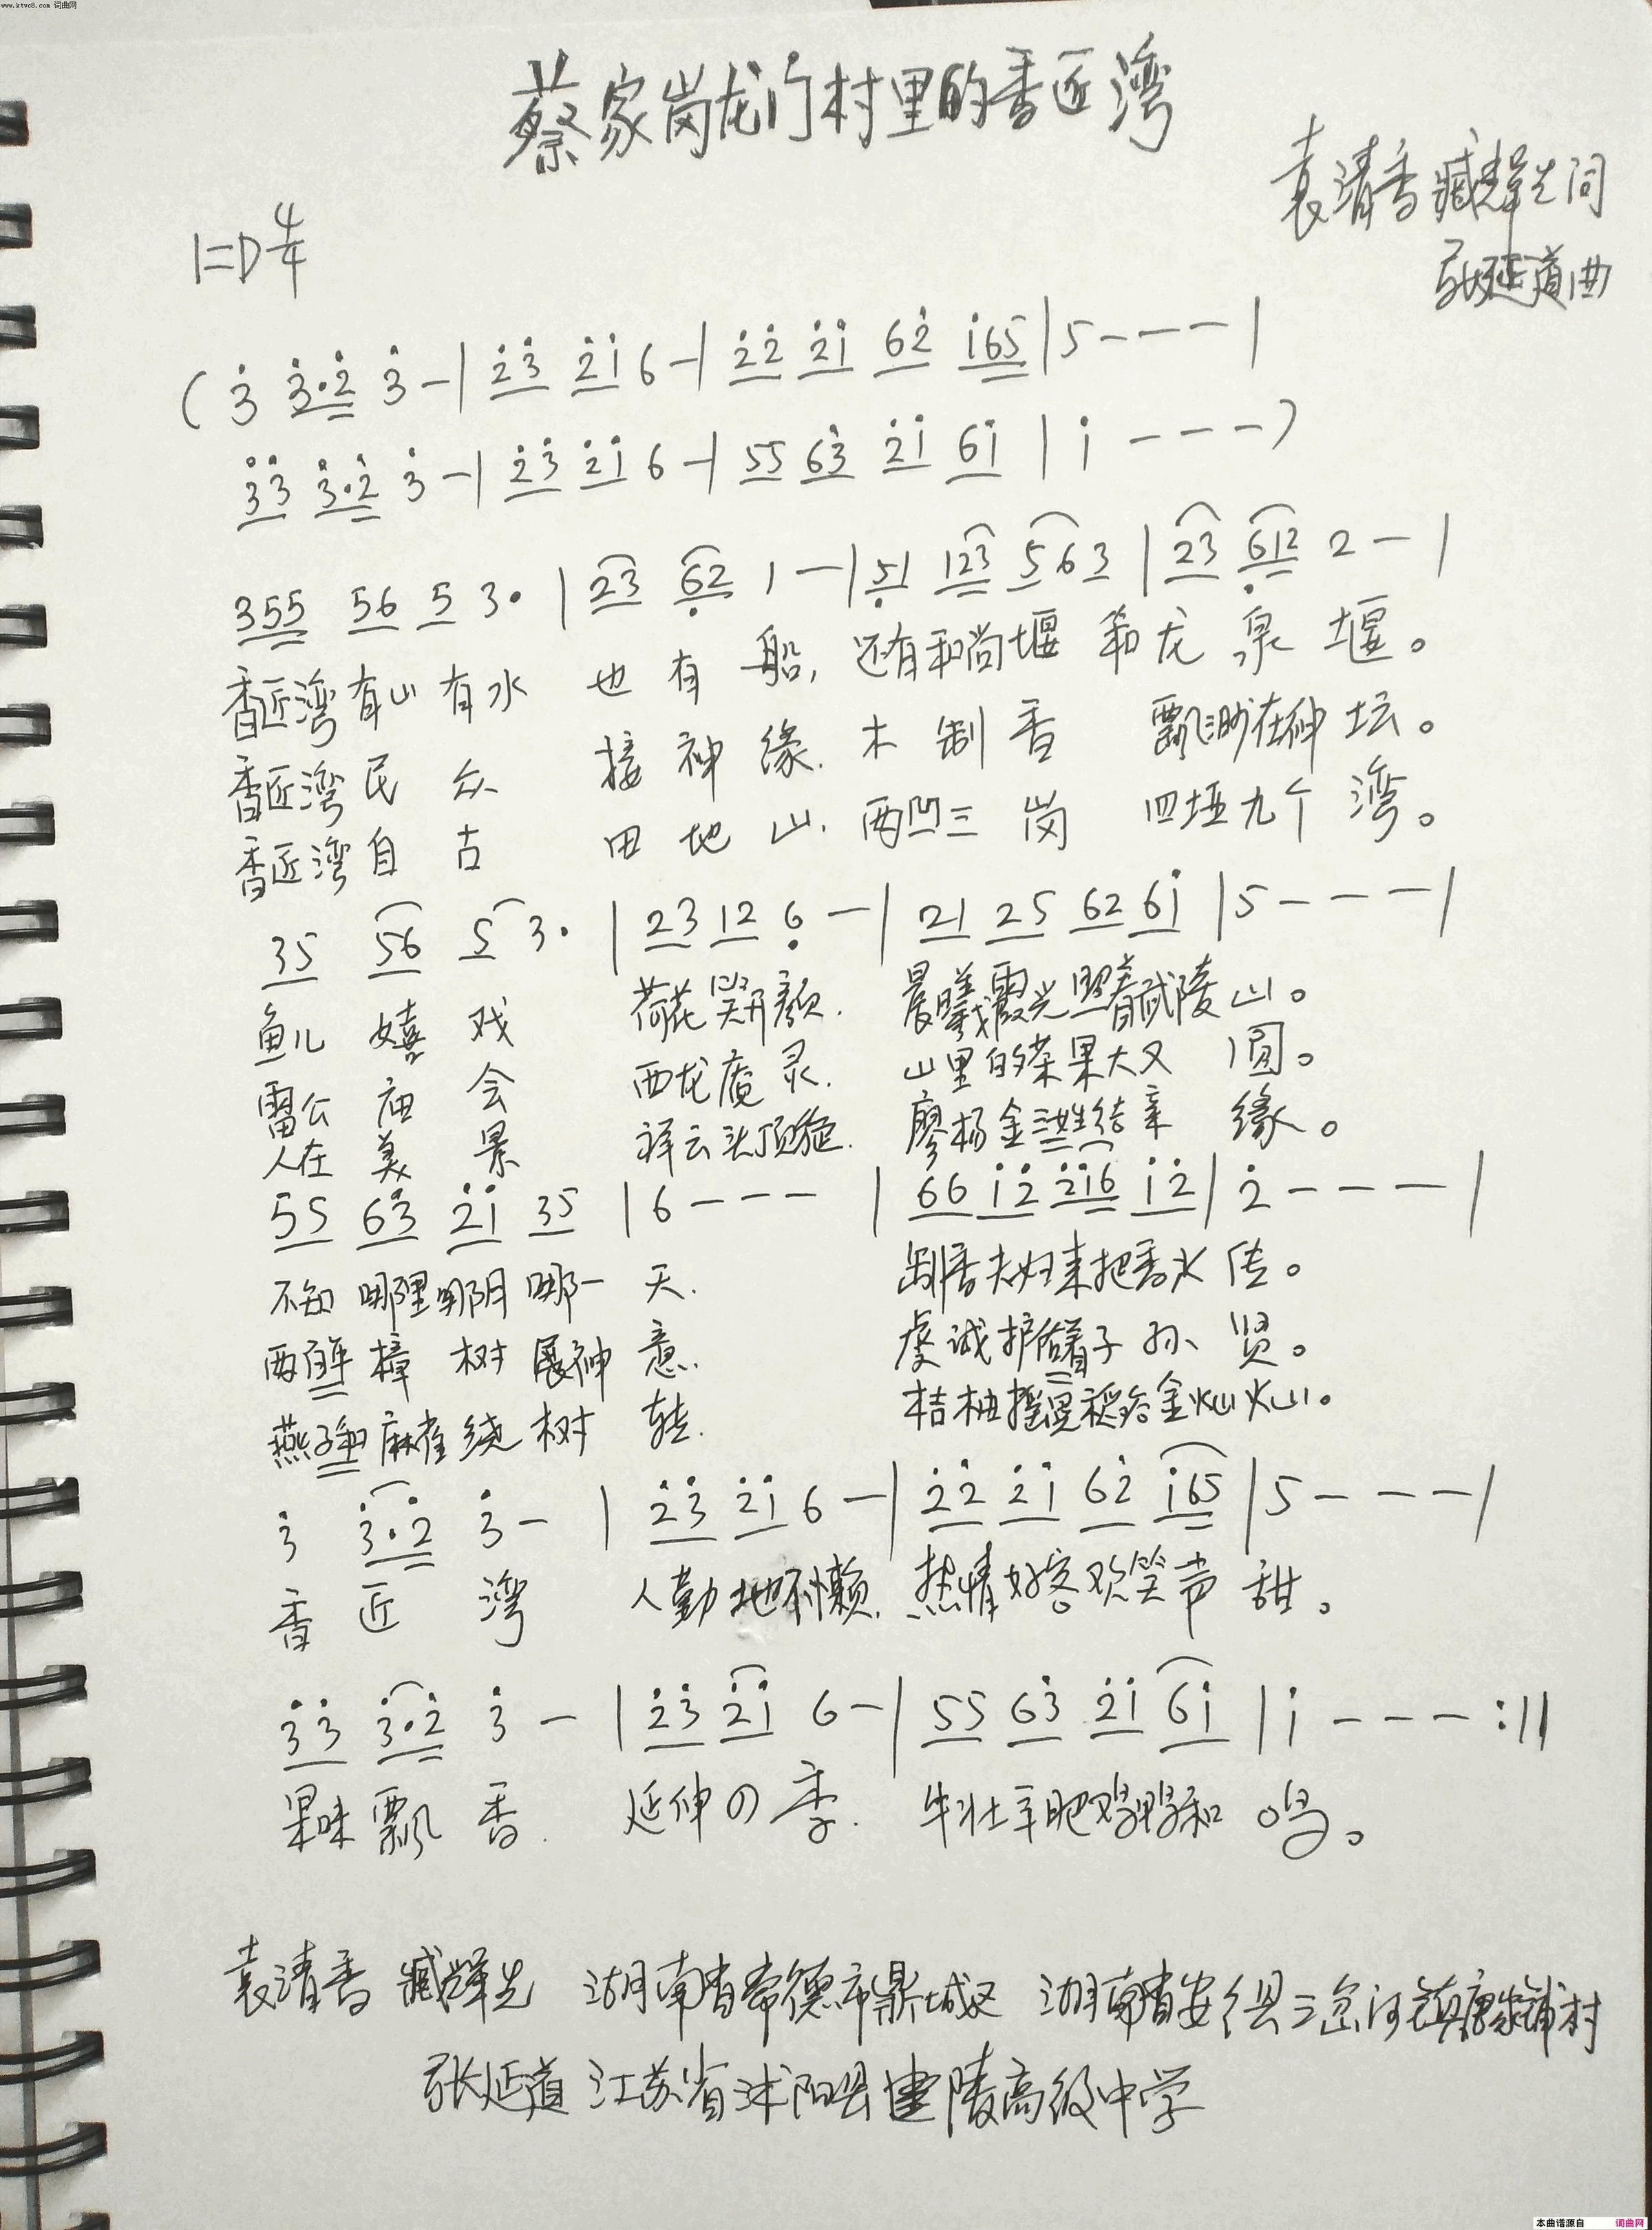 www.ktvc8.com 词曲网
蔡家岗龙门村里的香匠湾
袁清香 臧辉先词
张延道曲
1=D 4/4
(3̇ 3̇·2̇ 3̇ - | 2̇3̇ 2̇1̇ 6 - | 2̇2̇ 2̇1̇ 62̇ 1̇65 | 5 - - - |
3̇3̇ 3̇·2̇ 3̇ - | 2̇3̇ 2̇1̇ 6 - | 55 63̇ 2̇1̇ 61̇ | 1̇ - - - )
355 56 5 3· | 23 6̣2 1 - | 5̣1 123 5 6 3 | 23 6̣12 2 - |
香匠湾有山有水 也有船, 还有和尚堰 和龙泉堰。
香匠湾民众 接神缘. 木制香 飘渺在神坛。
香匠湾自古 田地山. 两凹三岗 四垭九个湾。
35 56 5 3· | 23 12 6̣ - | 21 25 62 61̇ | 5 - - - |
鱼儿嬉戏 荷花笑开颜. 晨曦霞光照着武陵山。
雷公庙会 西龙庵灵. 山里的茶果大又圆。
人在美景 祥云头顶旋. 廖杨金洪姓结亲缘。
55 63̇ 2̇1̇ 35 | 6 - - - | 66 1̇2̇ 2̇1̇6 1̇2̇ | 2̇ - - - |
不知哪里哪阴哪一天. 制香夫妇来把香火传。
两百年樟树展神意. 虔诚护储着子孙贤。
燕子和麻雀绕树转. 桔柚摇晃稻谷金灿灿。
3̇ 3̇·2̇ 3̇ - | 2̇3̇ 2̇1̇ 6 - | 2̇2̇ 2̇1̇ 62̇ 1̇65 | 5 - - - |
香匠湾 人勤地不懒. 热情好客欢笑声甜。
3̇3̇ 3̇·2̇ 3̇ - | 2̇3̇ 2̇1̇ 6 - | 55 63̇ 2̇1̇ 61̇ | 1̇ - - - :||
果味飘香. 延伸四季. 牛壮羊肥鸡鸭和鸣。
袁清香 臧辉先 湖南省常德市鼎城区 湖南省安乡县三岔河镇唐家铺村
张延道 江苏省沭阳县建陵高级中学
本曲谱源自 词曲网